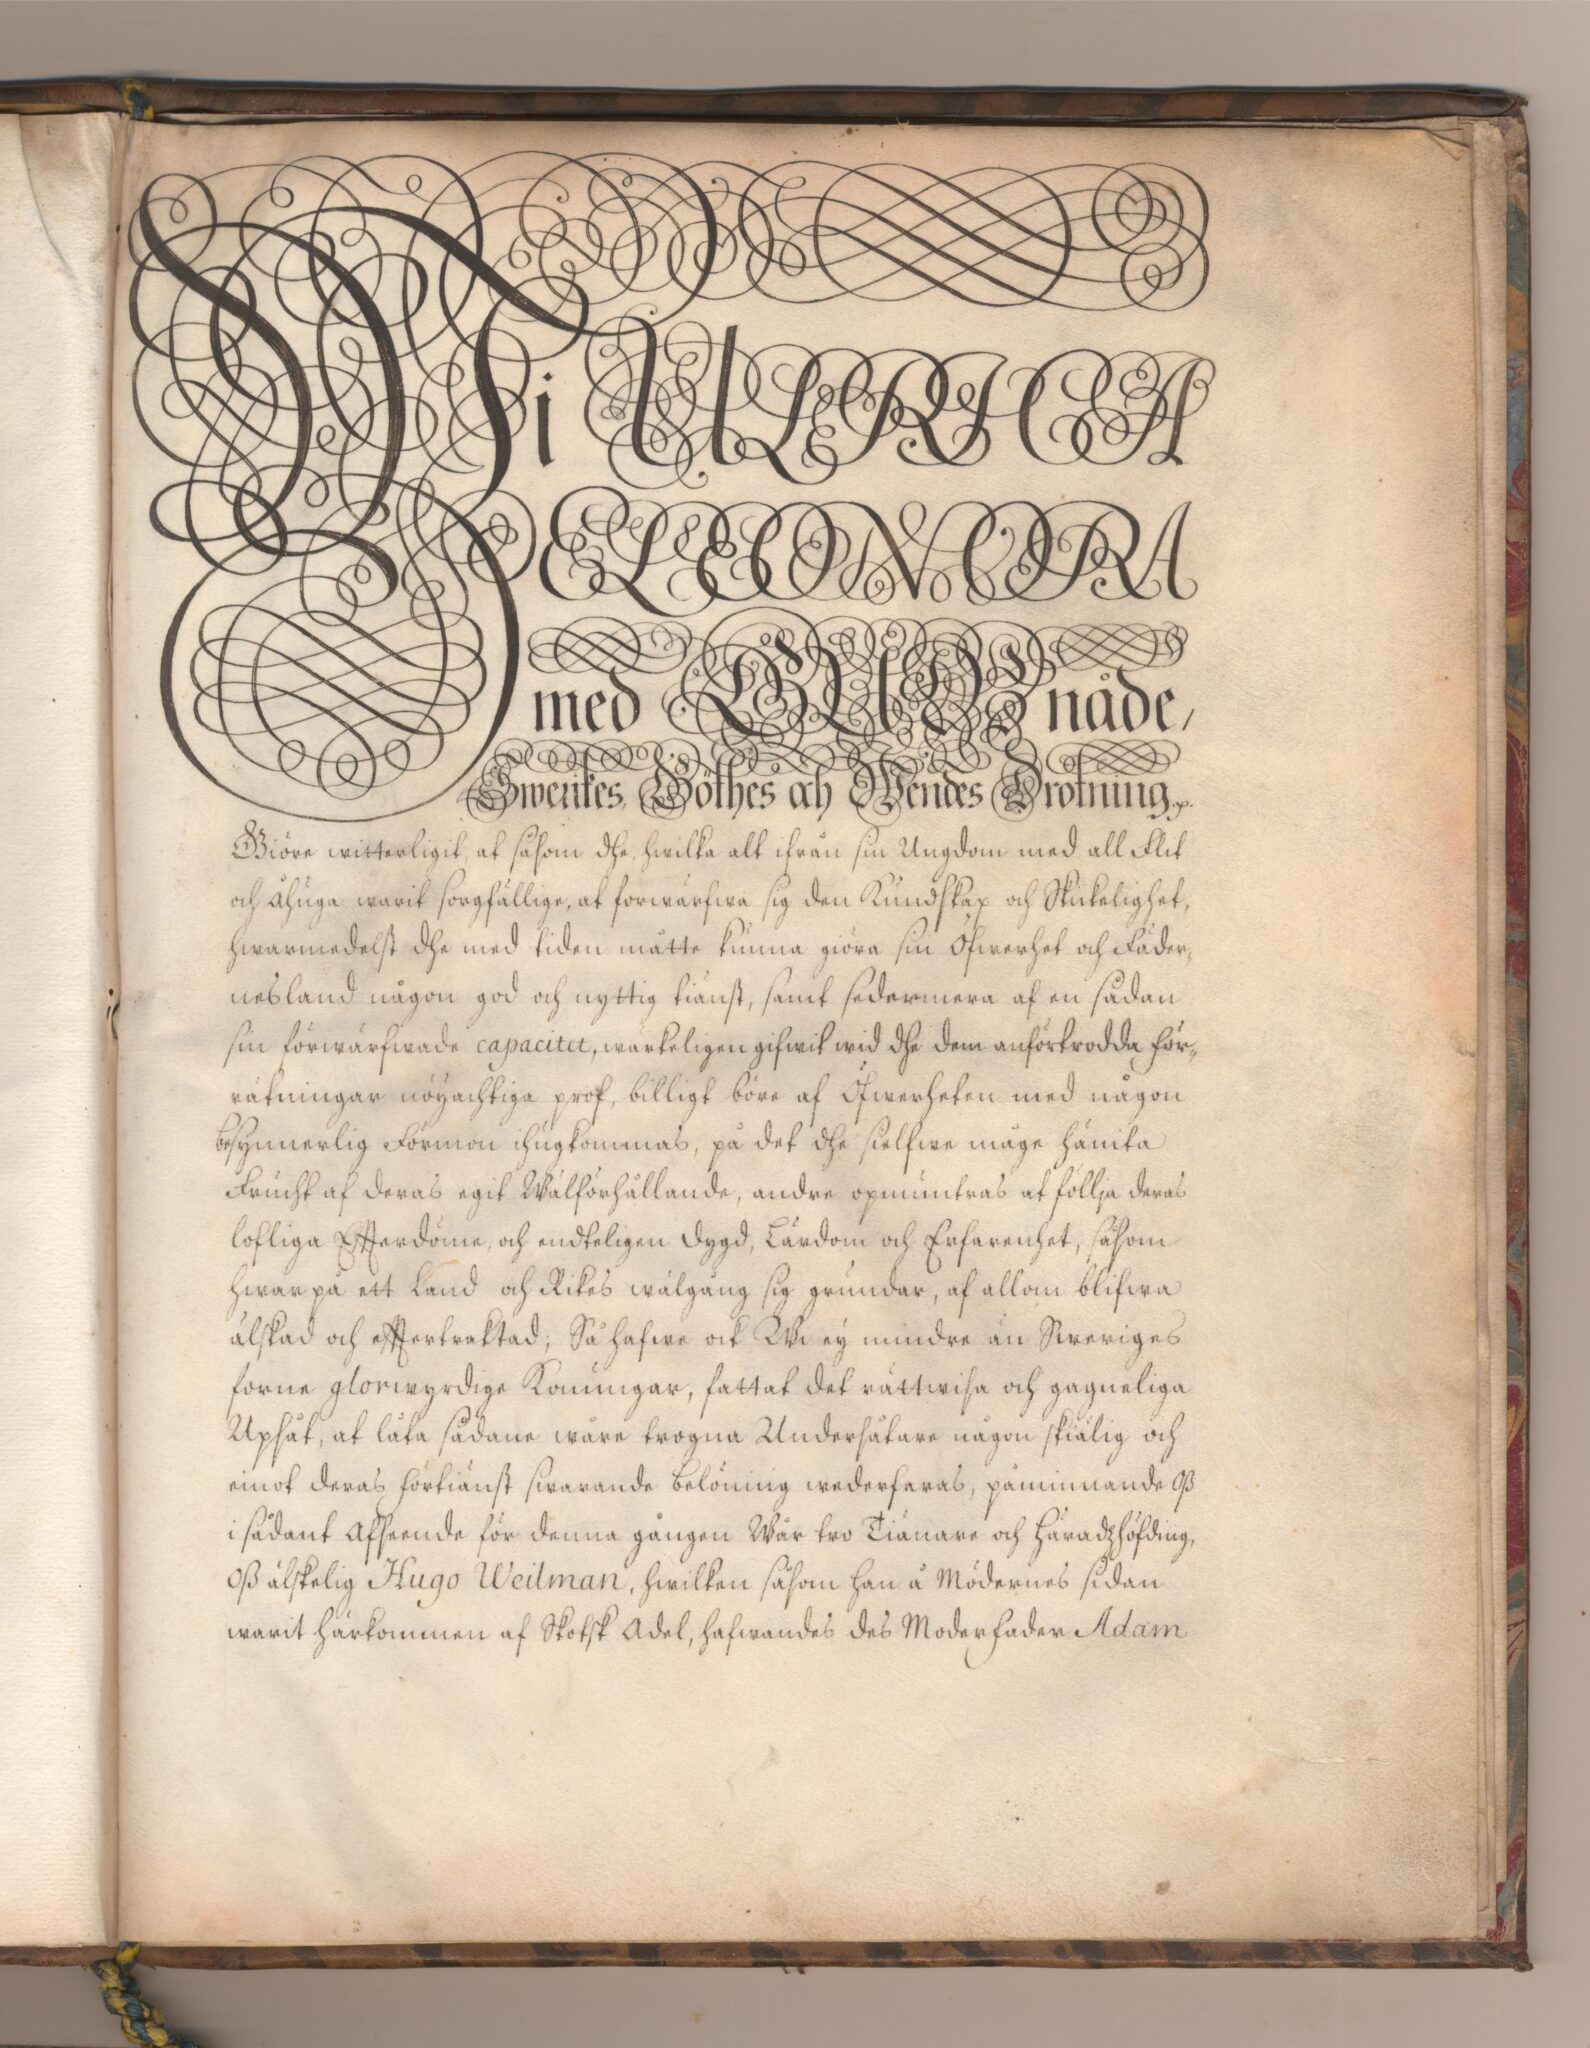 Wi ULRICA
ELEONORA
med GUDz nåde,
Swerikes, Göthes och Wendes Drotning p.
Giöre witterligit, at såsom dhe, hwilka alt ifrån sin Ungdom med all Flit
och Åhuga warit sorgfällige, at forwärfwa sig den Kundskap och Skickelighet,
hwarmedelst dhe med tiden måtte kunna giöra sin Öfwerhet och Fäder-
nesland någon god och nyttig tiänst, samt sedermera af en sådan
sin förwärfwade capacitet, wärkeligen gifwit wid dhe dem anförtrodda För-
rätningar nöyachtiga prof, billigt böre af Öfwerheten med någon
besynnerlig Förmon ihugkommas, på det dhe sielfwe måge hämta
Frucht af deras egit Wälförhållande, andre opmuntras at föllja deras
lofliga Efterdöme, och endteligen Dygd, Lärdom och Erfarenhet, såsom
hwarpå ett Land och Rikes wälgång sig grundar, af allom blifwa
älskad och eftertraktad; Så hafwe ock Wi ey mindre än Sweriges
forne glorwyrdige Konungar, fattat det rättwisa och gagneliga
Upsåt, at låta sådane wåre trogna Undersåtare någon skiälig och
emot deras förtiänst swarande belöning wederfaras, påminnande Oß
i sådant Afseende för denna gången Wår tro Tiänare och Häradzhöfding,
Oß älskelig Hugo Weilman, hwilken såsom han å Mödernes sidan
warit härkommen af Skotsk Adel, hafwandes des Moderfader Adam